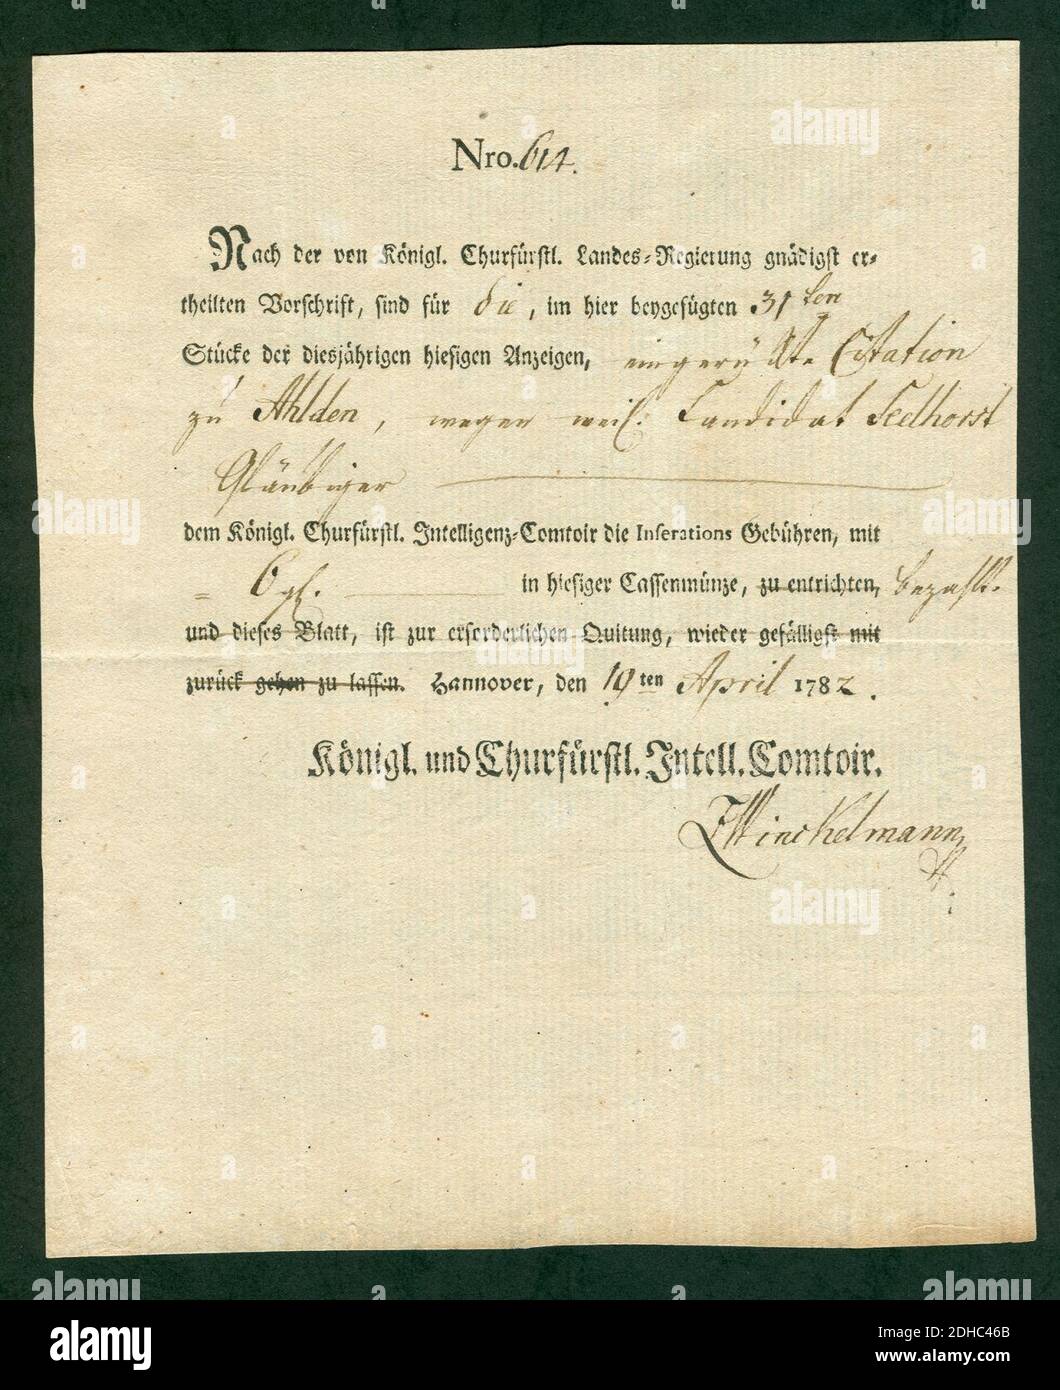 Nro. 614.
Nach der von Königl. Churfürstl. Landes-Regierung gnädigst er-
theilten Vorschrift, sind für die, im hier beygefügten 31ten
Stücke der diesjährigen hiesigen Anzeigen, eingerückte Citation
zu Ahlden, wegen weil: Candidat Seelhorst
Gläubiger
dem Königl. Churfürstl. Intelligenz-Comtoir die Inserations Gebühren, mit
= 6 gl. in hiesiger Cassenmünze, zu entrichten, bezahlt.
und dieses Blatt, ist zur erforderlichen Quitung, wieder gefälligst mit
zurück gehen zu lassen. Hannover, den 19ten April 1782.
Königl. und Churfürstl. Intell. Comtoir.
Winckelmann
alamy
Image ID: 2DHC46B
www.alamy.com